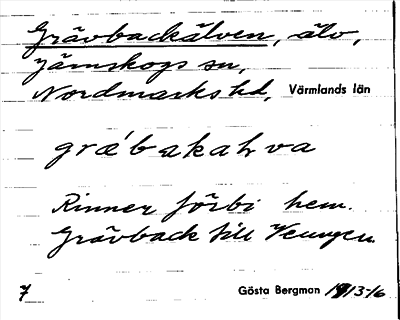 Grävbackälven, älv,
Järnskogs sn,
Nordmarks hd, Värmlands län
græ̀bakaḷva
Rinner förbi hem.
Grävback till Veungen.
7 Gösta Bergman 1913-16